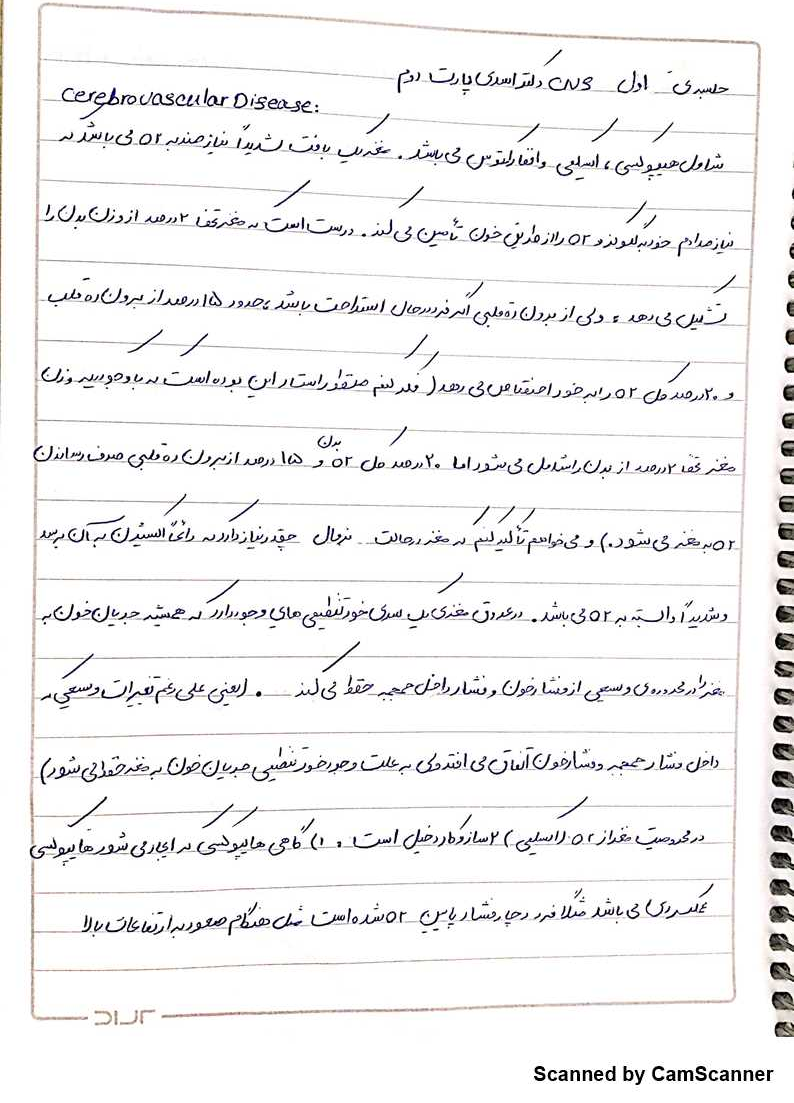 جلسه‌ی اول CNS دکتر اسدی پارت دوم
Cerebrovascular Disease:
شامل هیپوکسی ، ایسکمی و انفارکتوس می باشد . مغز یک بافت شدیداً نیازمند به O2 می باشد که
نیاز مداوم خود به گلوکز و O2 را از طریق خون تأمین می کند . درست است که مغز تقریبا 2 درصد از وزن بدن را
تشکیل می دهد ، ولی از برون ده قلبی اگر فرد در حال استراحت باشد ، حدود 15 درصد از برون ده قلب
و 20 درصد کل O2 را به خود اختصاص می دهد ( فکر کنم منظور استاد این بوده است که با وجودیکه وزن
مغز تقریبا 2 درصد از بدن را شامل می شود اما 20 درصد کل O2 بدن و 15 درصد از برون ده قلبی صرف رساندن
O2 به مغز می شود . ) و می خواهم تأکید کنم که مغز در حالت نرمال چقدر نیاز دارد که دائماً اکسیژن به آن برسد
و شدیداً وابسته به O2 می باشد . در عروق مغزی یک سری خود تنظیمی های وجود دارد که همیشه جریان خون به
مغز را در محدوده ی وسیعی از فشار خون و فشار داخل جمجمه حفظ می کند . ( یعنی علی رغم تغییرات وسیعی که
داخل فشار جمجمه و فشار خون اتفاق می افتد ولی به علت وجود خود تنظیمی جریان خون به مغز حفظ می شود )
در محرومیت مغز از O2 ( ایسکمی ) 2 ساز و کار دخیل است . 1) گاهی هایپوکسی که ایجاد می شود هایپوکسی
عملکردی می باشد مثلا فرد دچار فشار پایین O2 شده است مثل هنگام صعود به ارتفاعات بالا
Scanned by CamScanner